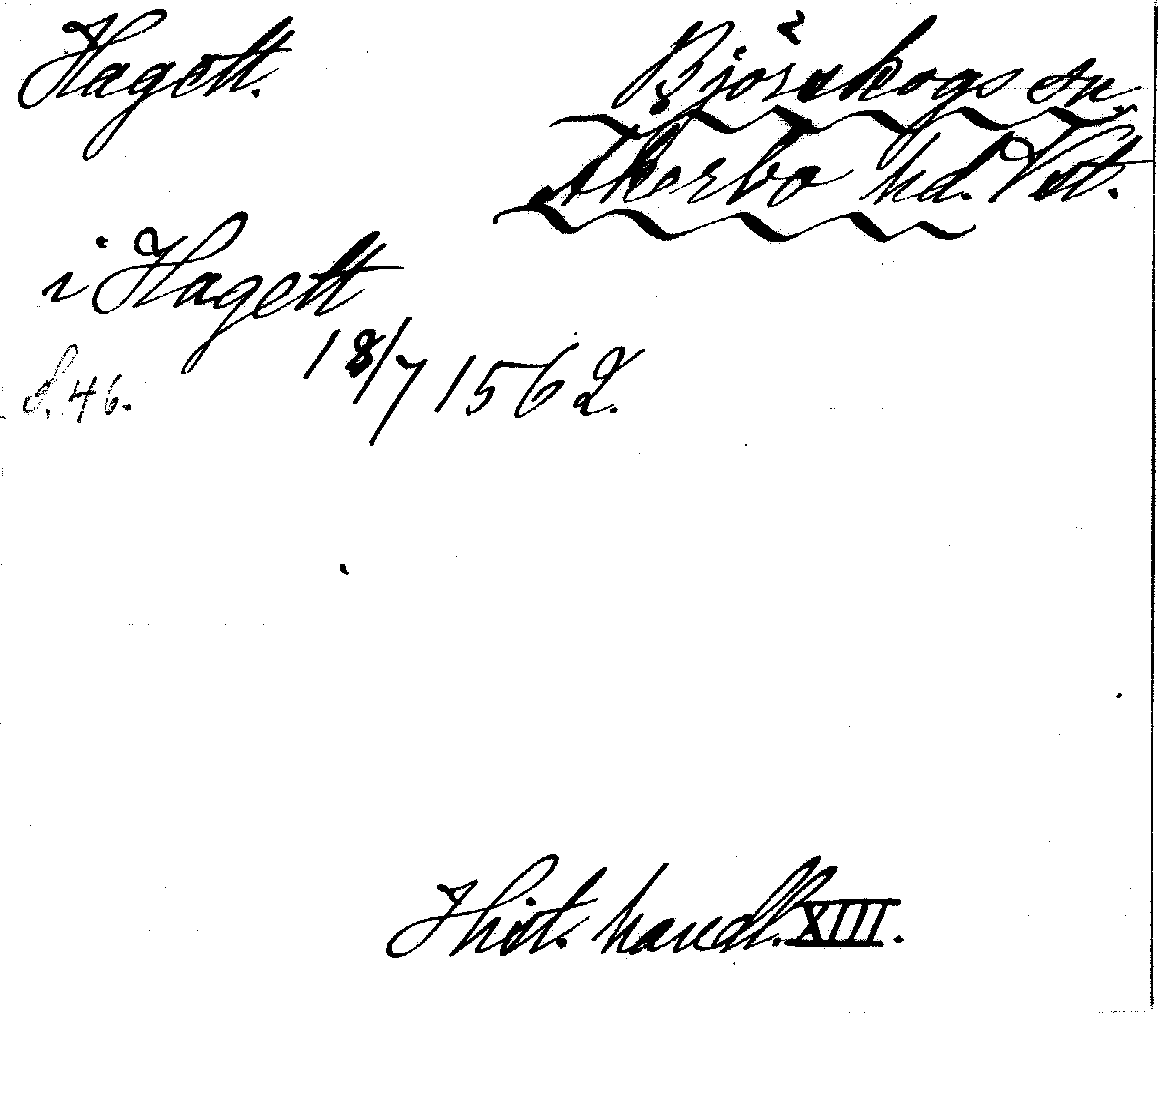 Hagett.
Björskogs sn,
Åkerbo hd. Vst.
i Hagett
18/7 1562.
s. 46.
Hist. handl. XIII.